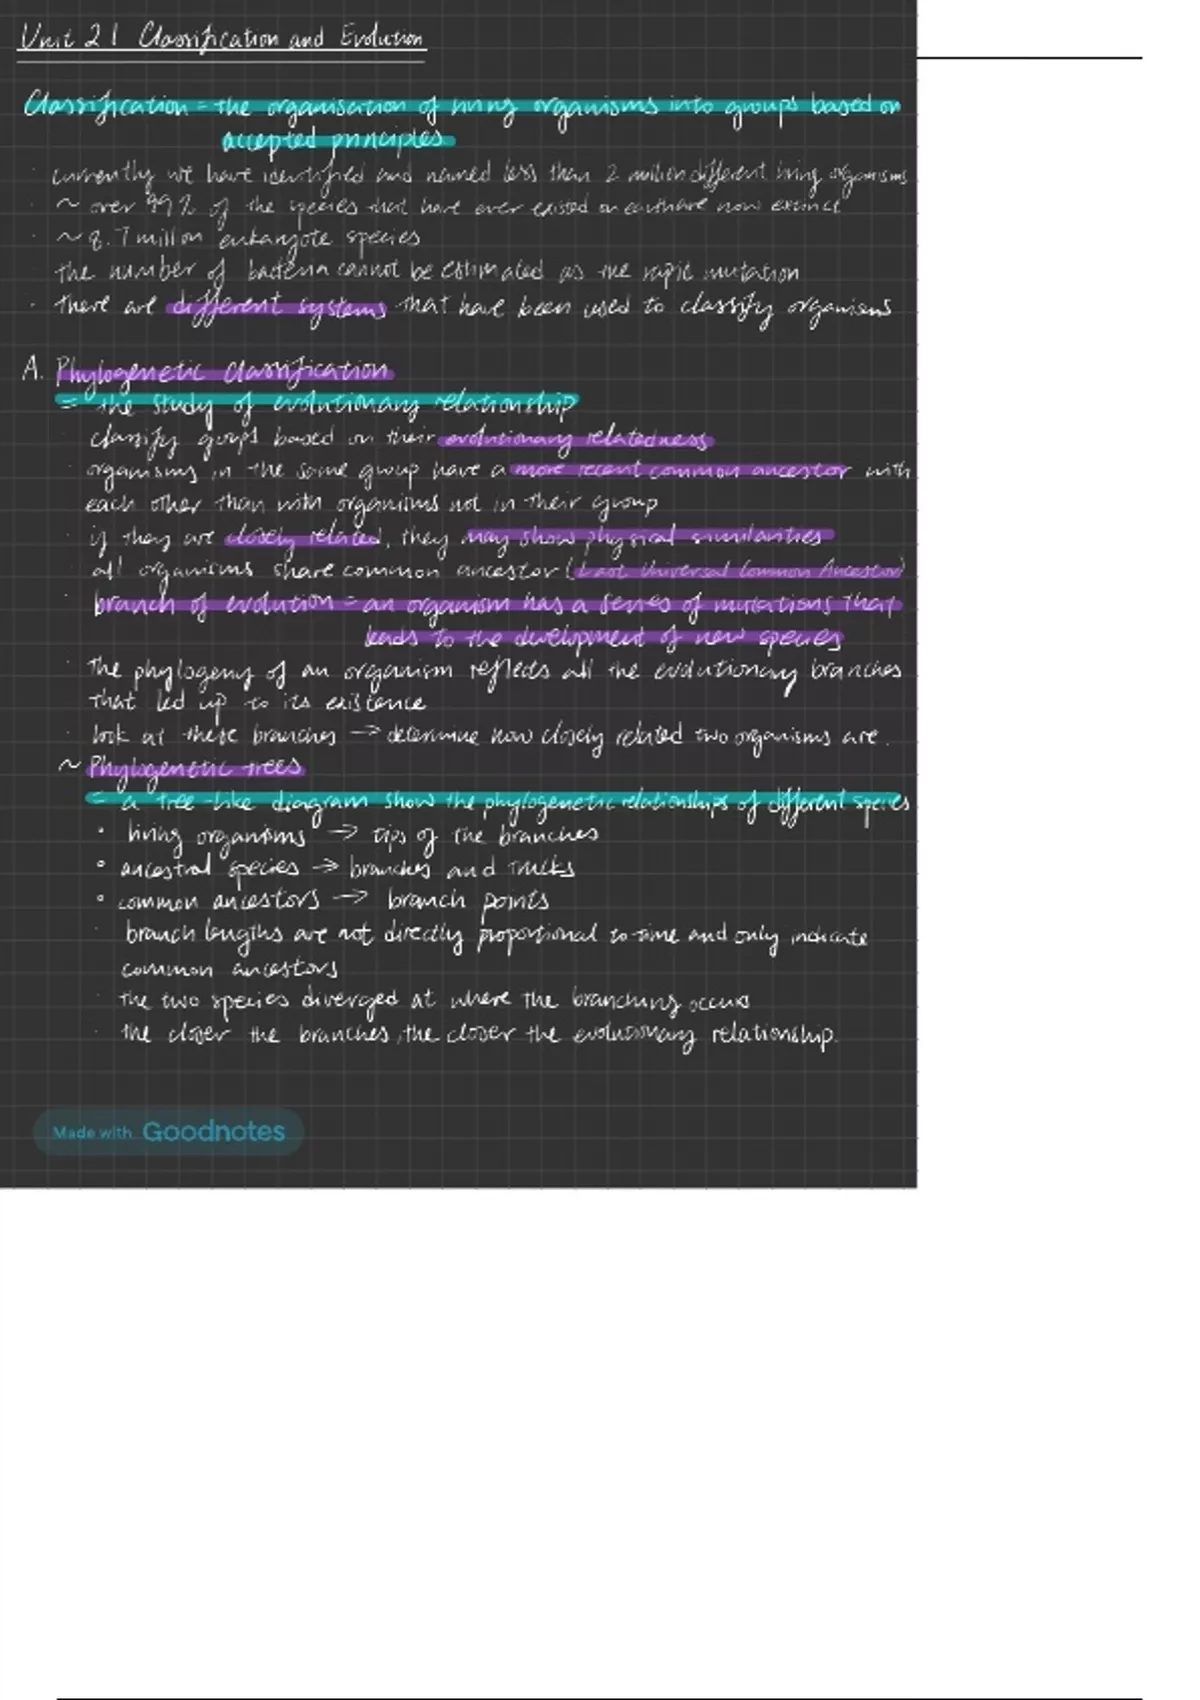 Unit 21 Classification and Evolution
Classification = the organisation of living organisms into groups based on
accepted principles
· currently we have identified and named less than 2 million different living organisms
· ~ over 99% of the species that have ever existed on earth are now extinct
· ~ 8.7 million eukaryote species
the number of bacteria cannot be estimated as the rapid mutation
· there are different systems that have been used to classify organisms
A. Phylogenetic Classification
= the study of evolutionary relationship
· classify groups based on their evolutionary relatedness
· organisms in the same group have a more recent common ancestor with
each other than with organisms not in their group
· if they are closely related, they may show physical similarities
· all organisms share common ancestor (Last Universal Common Ancestor)
· branch of evolution = an organism has a series of mutations that
leads to the development of new species
· the phylogeny of an organism reflects all the evolutionary branches
that led up to its existence
· look at these branches → determine how closely related two organisms are.
~ Phylogenetic trees
= a tree-like diagram show the phylogenetic relationships of different species
• living organisms → tips of the branches
• ancestral species → branches and trucks
• common ancestors → branch points
· branch lengths are not directly proportional to time and only indicate
common ancestors
· the two species diverged at where the branching occurs
· the closer the branches, the closer the evolutionary relationship.
Made with Goodnotes